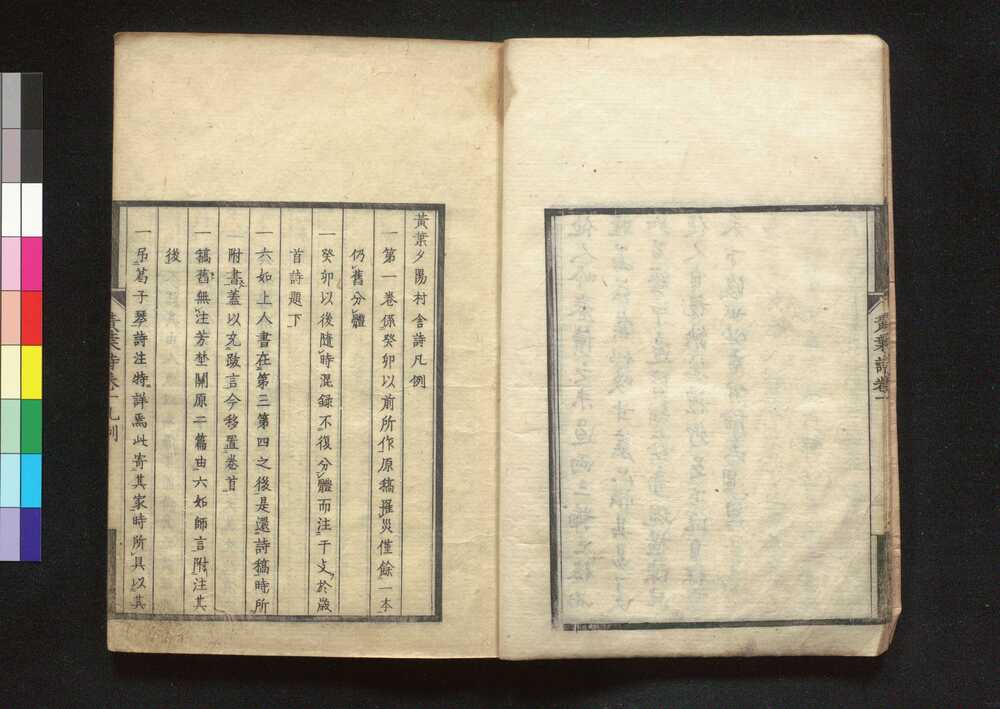 黃葉詩卷一
黃葉夕陽村舍詩凡例
一第一卷係癸卯以前所作原稿罹災僅餘一本
仍舊分體
一癸卯以後隨時混録不復分體而注干支於歲
首詩題下
一六如上人書在第三第四之後是還詩稿時所
附書蓋以充跋言今移置卷首
一稿舊無注芳埜關原二篇由六如師言附注其
後
一吊葛子琴詩注特詳焉此寄其家時所具以其
黃葉詩卷一凡例